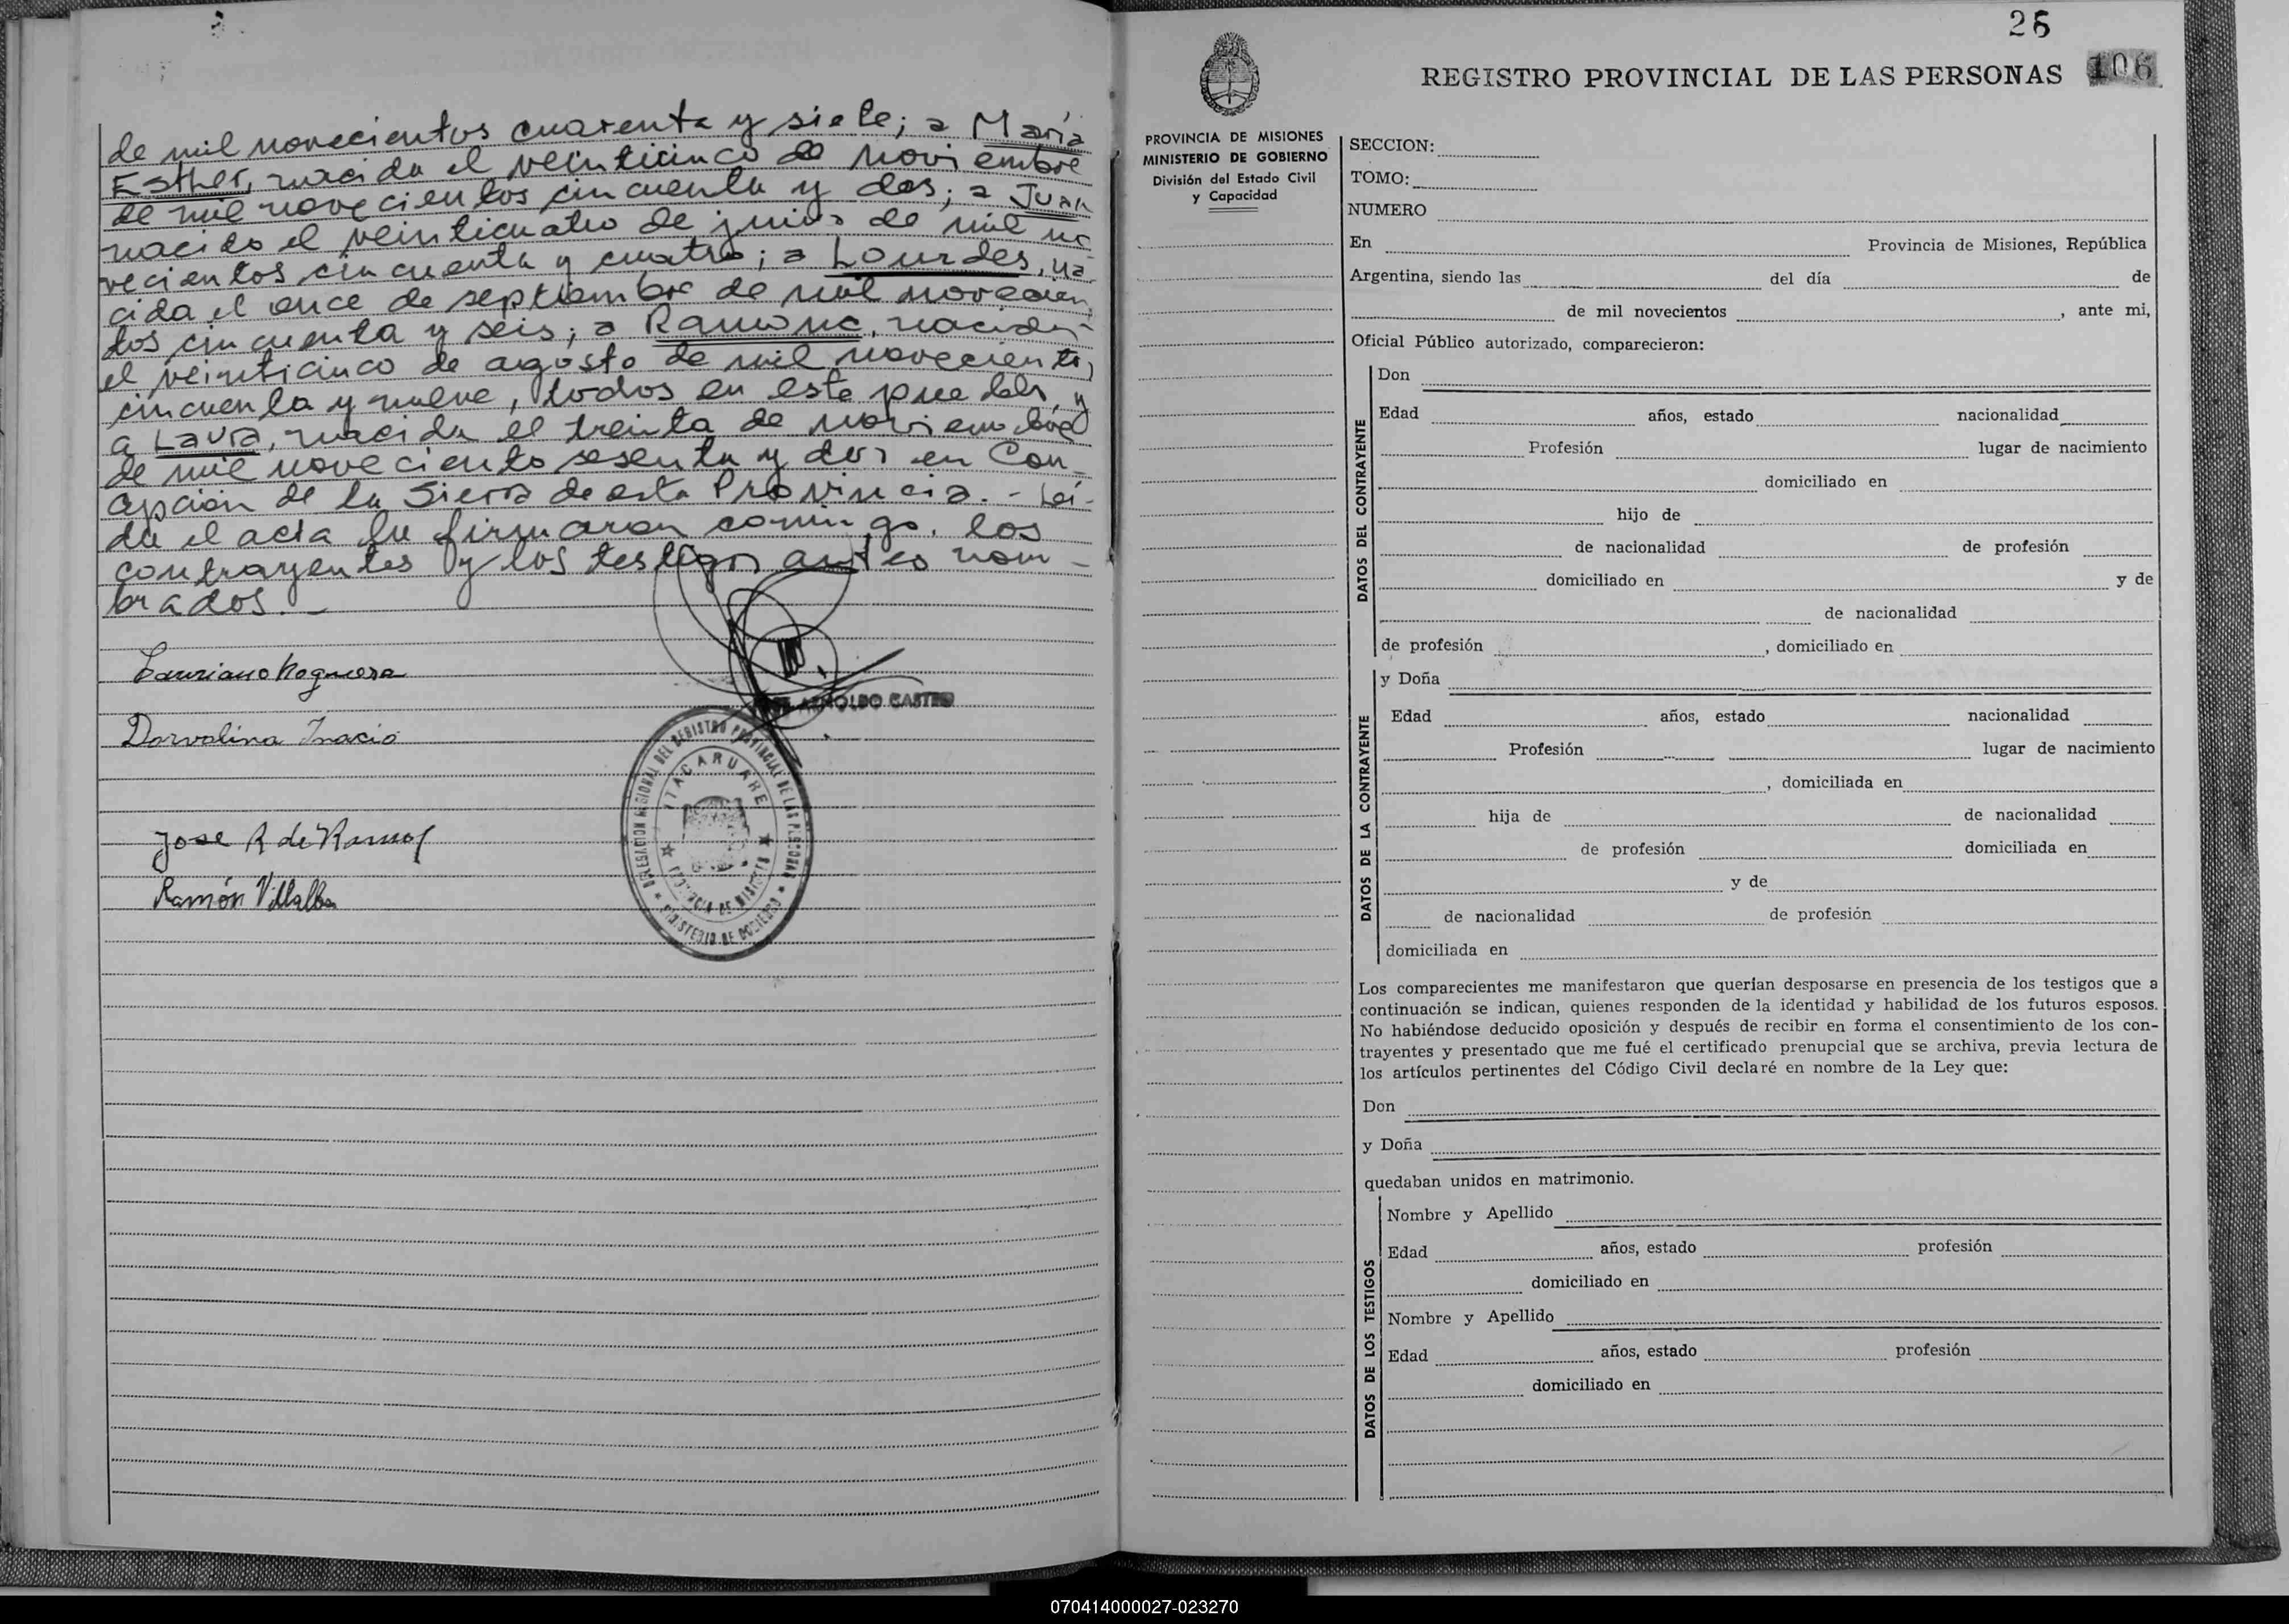 de mil novecientos cuarenta y siete; a María
Esther, nacida el veinticinco de noviembre
de mil novecientos cincuenta y dos; a Juan
nacido el veinticuatro de junio de mil no
vecientos cincuenta y cuatro; a Lourdes, na-
cida el once de septiembre de mil novecien
tos cincuenta y seis; a Ramona, nacida
el veinticinco de agosto de mil novecientos
cincuenta y nueve, todos en este pueblo, y
a Laura, nacida el treinta de noviembre
de mil novecientos sesenta y dos en Con-
cepción de la Sierra de esta Provincia. - Leí-
da el acta la firmaron comigo, los
contrayentes y los testigos antes nom-
brados. -
Lauriano Noguera
ARNOLDO CASTRO
Dorvalina Inacio
Jose R de Ramos
Ramón Villalba
DELEGACION REGIONAL DEL REGISTRO PROVINCIAL DE LAS PERSONAS
ITACARUARE
PROVINCIA DE MISIONES
MINISTERIO DE GOBIERNO
26
REGISTRO PROVINCIAL DE LAS PERSONAS 106
PROVINCIA DE MISIONES
MINISTERIO DE GOBIERNO
División del Estado Civil
y Capacidad
SECCION:
TOMO:
NUMERO
En Provincia de Misiones, República
Argentina, siendo las del día de
de mil novecientos , ante mi,
Oficial Público autorizado, comparecieron:
DATOS DEL CONTRAYENTE
Don
Edad años, estado nacionalidad
Profesión lugar de nacimiento
domiciliado en
hijo de
de nacionalidad de profesión
domiciliado en y de
de nacionalidad
de profesión , domiciliado en
DATOS DE LA CONTRAYENTE
y Doña
Edad años, estado nacionalidad
Profesión lugar de nacimiento
, domiciliada en
hija de de nacionalidad
de profesión domiciliada en
y de
de nacionalidad de profesión
domiciliada en
Los comparecientes me manifestaron que querían desposarse en presencia de los testigos que a
continuación se indican, quienes responden de la identidad y habilidad de los futuros esposos.
No habiéndose deducido oposición y después de recibir en forma el consentimiento de los con-
trayentes y presentado que me fué el certificado prenupcial que se archiva, previa lectura de
los artículos pertinentes del Código Civil declaré en nombre de la Ley que:
Don
y Doña
quedaban unidos en matrimonio.
DATOS DE LOS TESTIGOS
Nombre y Apellido
Edad años, estado profesión
domiciliado en
Nombre y Apellido
Edad años, estado profesión
domiciliado en
070414000027-023270